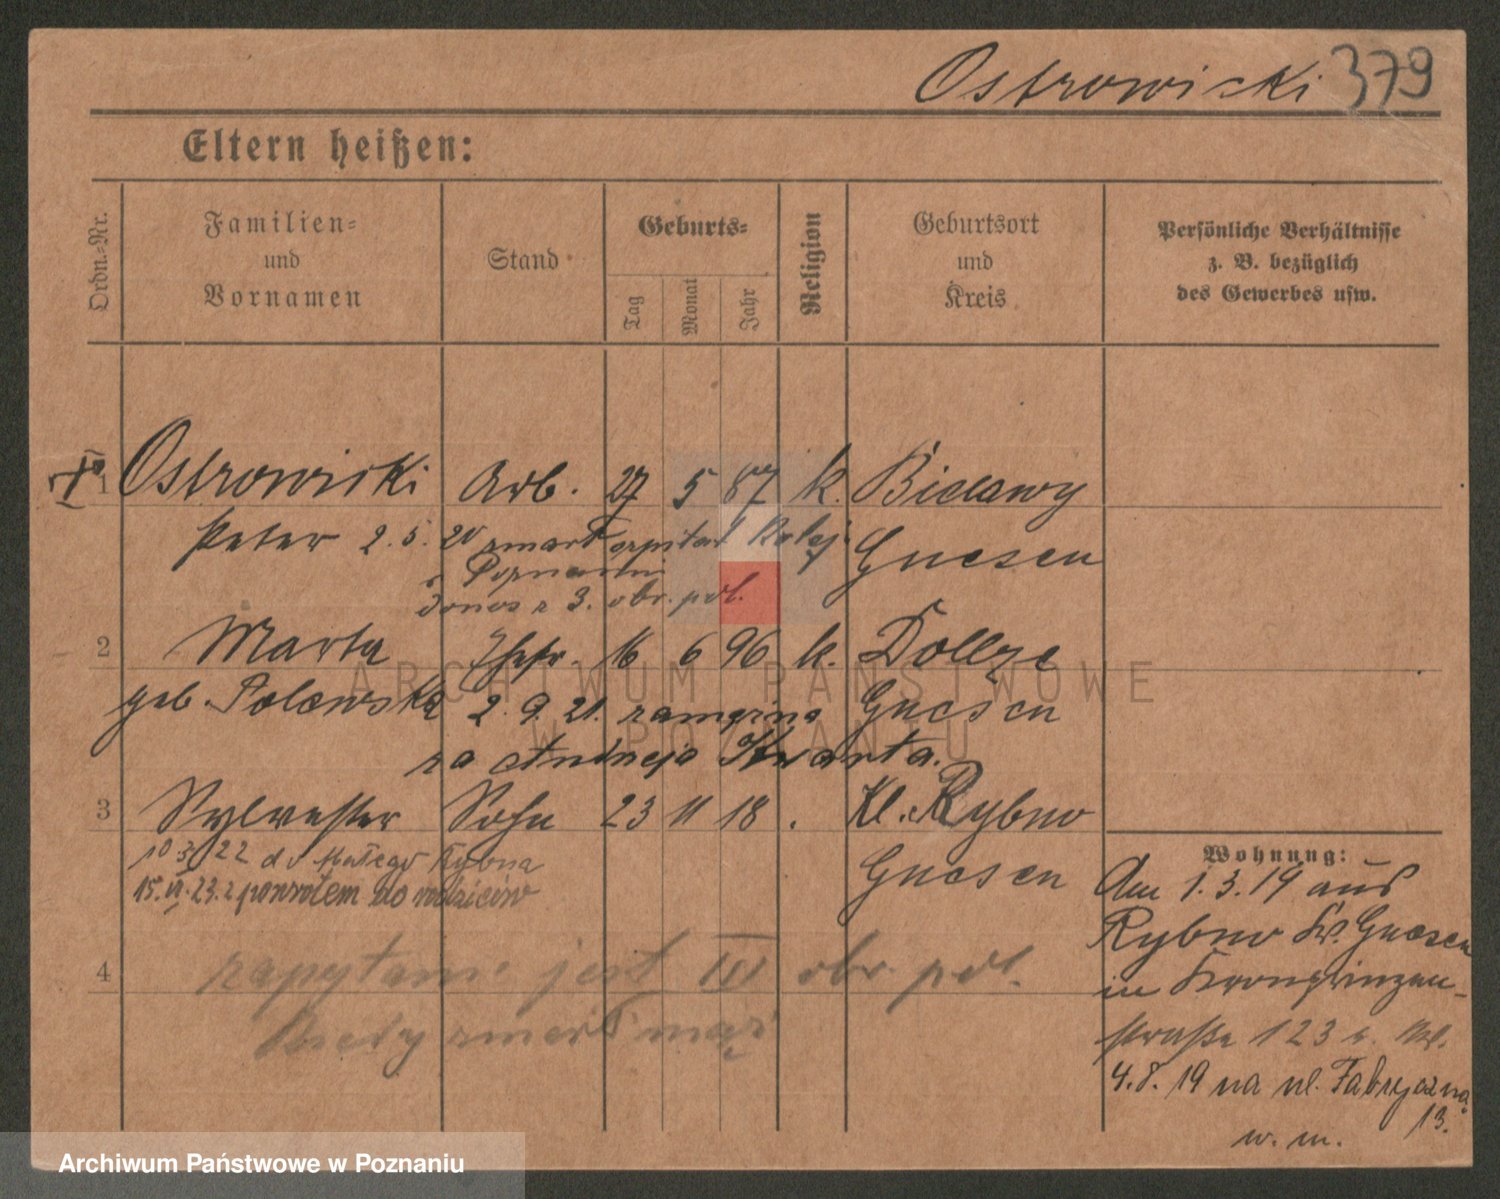 Ostrowicki 379
Eltern heißen:
Ordn.-Nr.
Familien- und Vornamen
Stand
Geburts-
Tag
Monat
Jahr
Religion
Geburtsort und Kreis
Persönliche Verhältnisse z. B. bezüglich des Gewerbes usw.
1 Ostrowicki Arb. 27 5 87 k. Bielawy
Peter 2. 5. 20 zmarł szpital Kolej. Gnesen
w Poznaniu
donos z 3. obr. pol.
2 Marta Ehefr. 16 6 96 k.
geb. Polewska 2. 9. 21. zamężna Gnesen
za Andrzeja Kwarta.
3 Sylvester Sohn 23 11 18 . Kl. Rybno
10 3 22 do Małego Rybna Gnesen
15. VI. 23. z powrotem do rodziców
4 zapytanie jest III obr. pol.
kiedy zmarł mąż
Wohnung:
Am 1. 3. 19 aus
Rybno Kr. Gnesen
in Kronprinzen-
straße 123
4. 8. 19 na ul. Fabryczną
13.
w. m.
ARCHIWUM PAŃSTWOWE
W POZNANIU
Archiwum Państwowe w Poznaniu